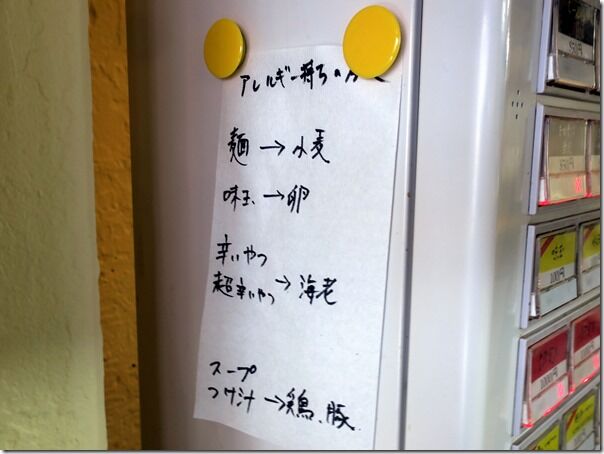 アレルギー持ちの方へ
麺→小麦
味玉→卵
辛いやつ
超辛いやつ→海老
スープ
つけ汁→鶏、豚
1000円
1000円